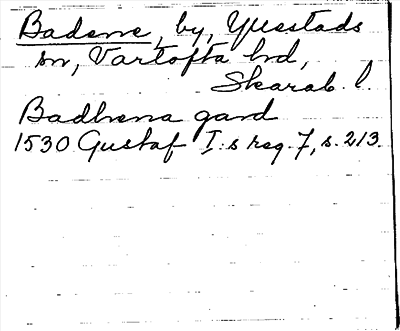 Badene, by, Yllestads
sn, Vartofta hd,
Skarab. l.
Badhena gard
1530 Gustaf I:s reg. 7, s. 213.